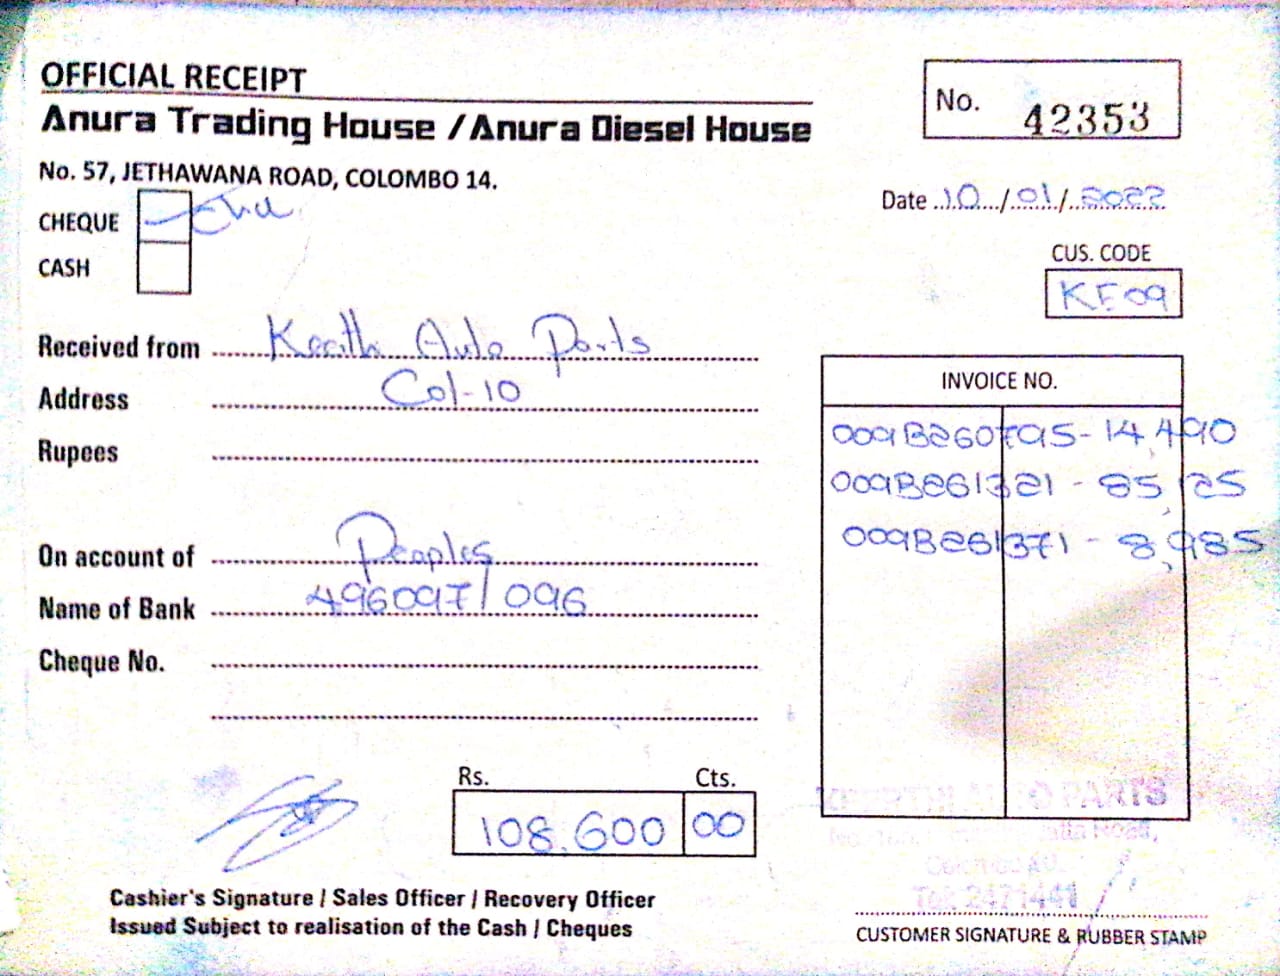 OFFICIAL RECEIPT
Anura Trading House / Anura Diesel House
No. 57, JETHAWANA ROAD, COLOMBO 14.
No. 42353
Date 10/01/2022
CHEQUE
CASH
CUS. CODE
KE09
Received from Keerthi Auto Parts
Address Col-10
Rupees
INVOICE NO.
009B260795- 14,490
009B261321 - 85,125
009B261371 - 8,985
On account of Peoples
Name of Bank 496097/096
Cheque No.
Rs. Cts.
108,600 00
KEERTHI AUTO PARTS
Road,
Colombo 10.
Tel: 2471441
Cashier's Signature / Sales Officer / Recovery Officer
Issued Subject to realisation of the Cash / Cheques
CUSTOMER SIGNATURE & RUBBER STAMP